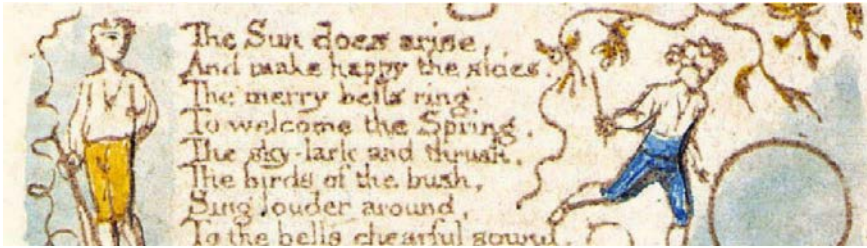 The Sun does arise,
And make happy the skies.
The merry bells ring.
To welcome the Spring.
The sky-lark and thrush,
The birds of the bush,
Sing louder around,
To the bells chearful sound.